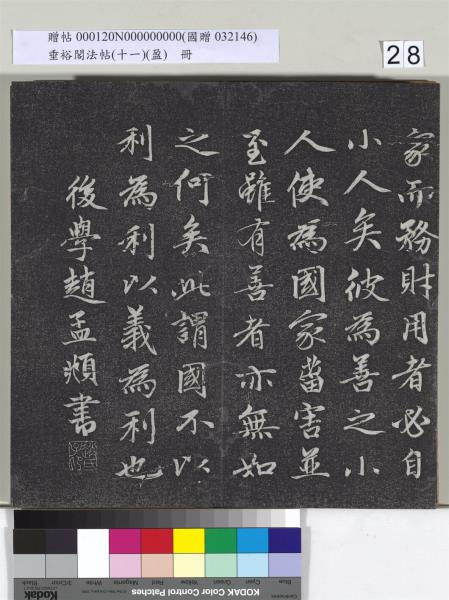 贈帖 000120N000000000(國贈 032146)
垂裕閣法帖(十一)(盈) 冊
28
家而務財用者必自
小人矣彼為善之小
人使為國家菑害並
至雖有善者亦無如
之何矣此謂國不以
利為利以義為利也
後學趙孟頫書
Blue Cyan Green Yellow Red Magenta White 3/Color Black
Kodak KODAK Color Control Patches